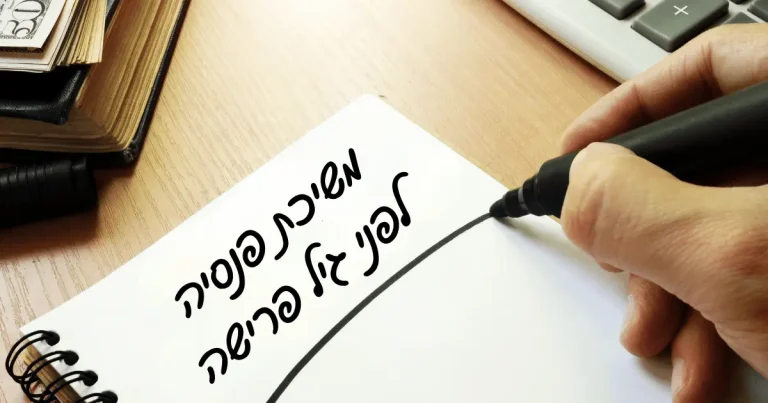 משיכת פנסיה
לפני גיל פרישה